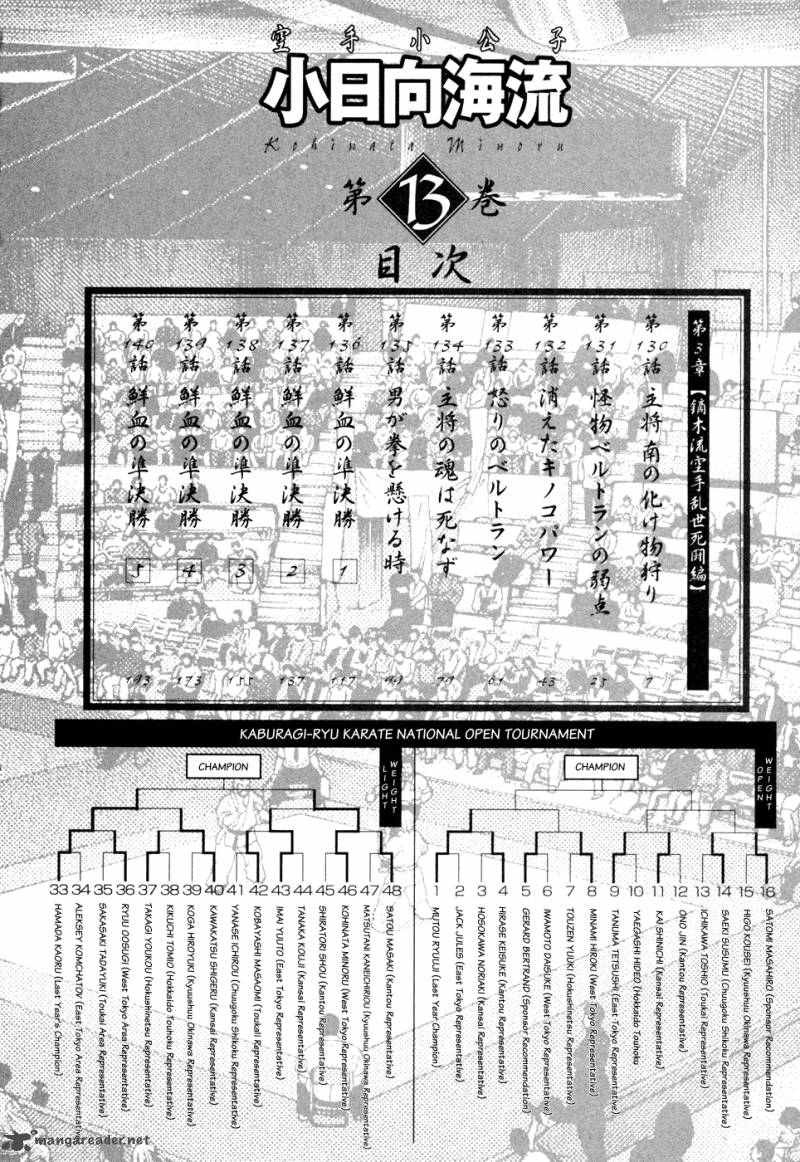 空手小公子
小日向海流
Kohinata Minoru
第13巻
目次
第3章【鏑木流空手乱世死闘編】
第130話 主将南の化け物狩り 7
第131話 怪物ベルトランの弱点 25
第132話 消えたキノコパワー 43
第133話 怒りのベルトラン 61
第134話 主将の魂は死なず 79
第135話 男が拳を懸ける時
第136話 鮮血の準決勝 1 117
第137話 鮮血の準決勝 2 137
第138話 鮮血の準決勝 3 155
第139話 鮮血の準決勝 4 173
第140話 鮮血の準決勝 5 193
KABURAGI-RYU KARATE NATIONAL OPEN TOURNAMENT
CHAMPION
LIGHT WEIGHT
33 HAMADA KAORU (Last Year's Champion)
34 ALEKSEY KOMCHATOV (East Tokyo Area Representative)
35 SAKASAKI TADAYUKI (Toukai Area Representative)
36 RYUU OOSUGI (West Tokyo Area Representative)
37 TAKAGI YOUKOU (Hokushinetsu Representative)
38 KIKUCHI TOMIO (Hokkaido Touhoku Representative)
39 KOGA HIROYUKI (Kyuushuu Okinawa Representative)
40 KAWAKATSU SHIGERU (Kansai Representative)
41 YANASE ICHIROU (Chuugoku Shikoku Representative)
42 KOBAYASHI MASAOMI (Toukai Representative)
43 IMAI YUUTO (East Tokyo Representative)
44 TANAKA KOUJI (Kansai Representative)
45 SHIRATORI SHOU (Kantou Representative)
46 KOHINATA MINORU (West Tokyo Representative)
47 MATSUTANI KANEICHIROU (Kyuushuu Okinawa Representative)
48 SATOU MASAKI (Kantou Representative)
CHAMPION
OPEN WEIGHT
1 MUTOU RYUUJI (Last Year Champion)
2 JACK JULES (East Tokyo Representative)
3 HOSOKAWA NORIAKI (Kansai Representative)
4 HIRASE KEISUKE (Kantou Representative)
5 GERARD BERTRAND (Sponsor Recommendation)
6 IWAMOTO DAISUKE (West Tokyo Representative)
7 TOUZEN YUUKI (Hokushinetsu Representative)
8 MINAMI HIROKI (West Tokyo Representative)
9 TANUMA TETSUSHI (East Tokyo Representative)
10 YAEGASHI HIDEO (Hokkaido Touhoku
11 KAI SHINICHI (Kansai Representative)
12 ONO JIN (Kantou Representative)
13 ICHIKAWA TOSHIO (Toukai Representative)
14 SAEKI SUSUMU (Chuugoku Shikoku Representative)
15 HIGO KOUSEI (Kyuushuu Okinawa Representative)
16 SATOMI MASAHIRO (Sponsor Recommendation)
mangareader.net